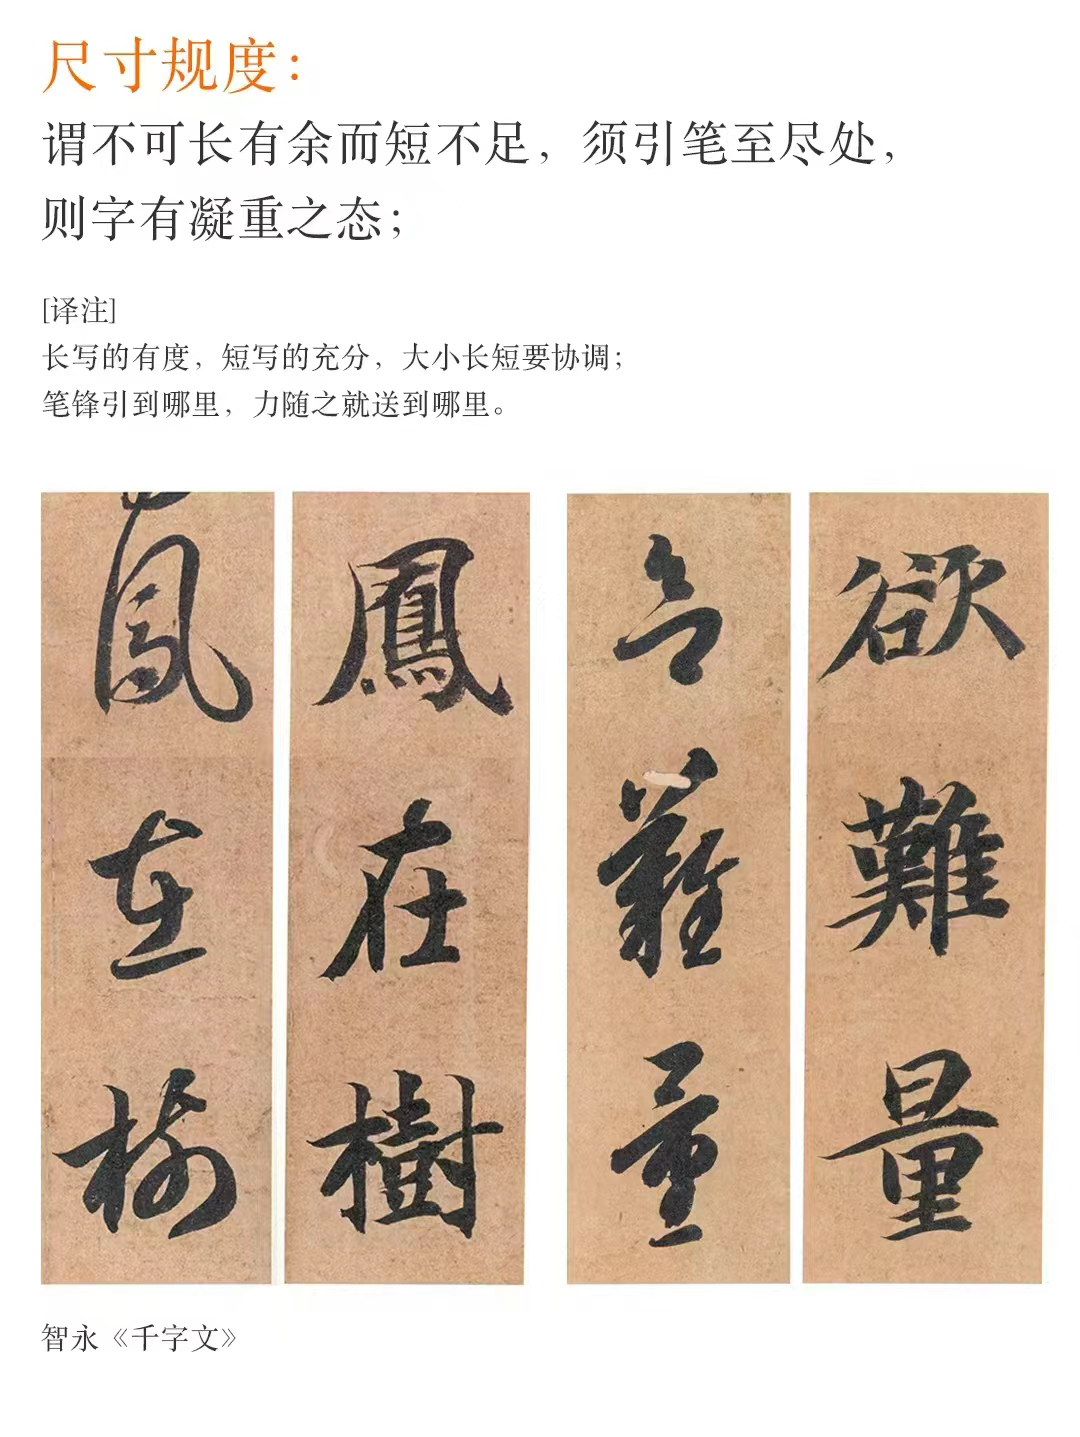 尺寸规度：
谓不可长有余而短不足，须引笔至尽处，
则字有凝重之态；
[译注]
长写的有度，短写的充分，大小长短要协调；
笔锋引到哪里，力随之就送到哪里。
鳳在樹
鳳在樹
欲難量
欲難量
智永《千字文》